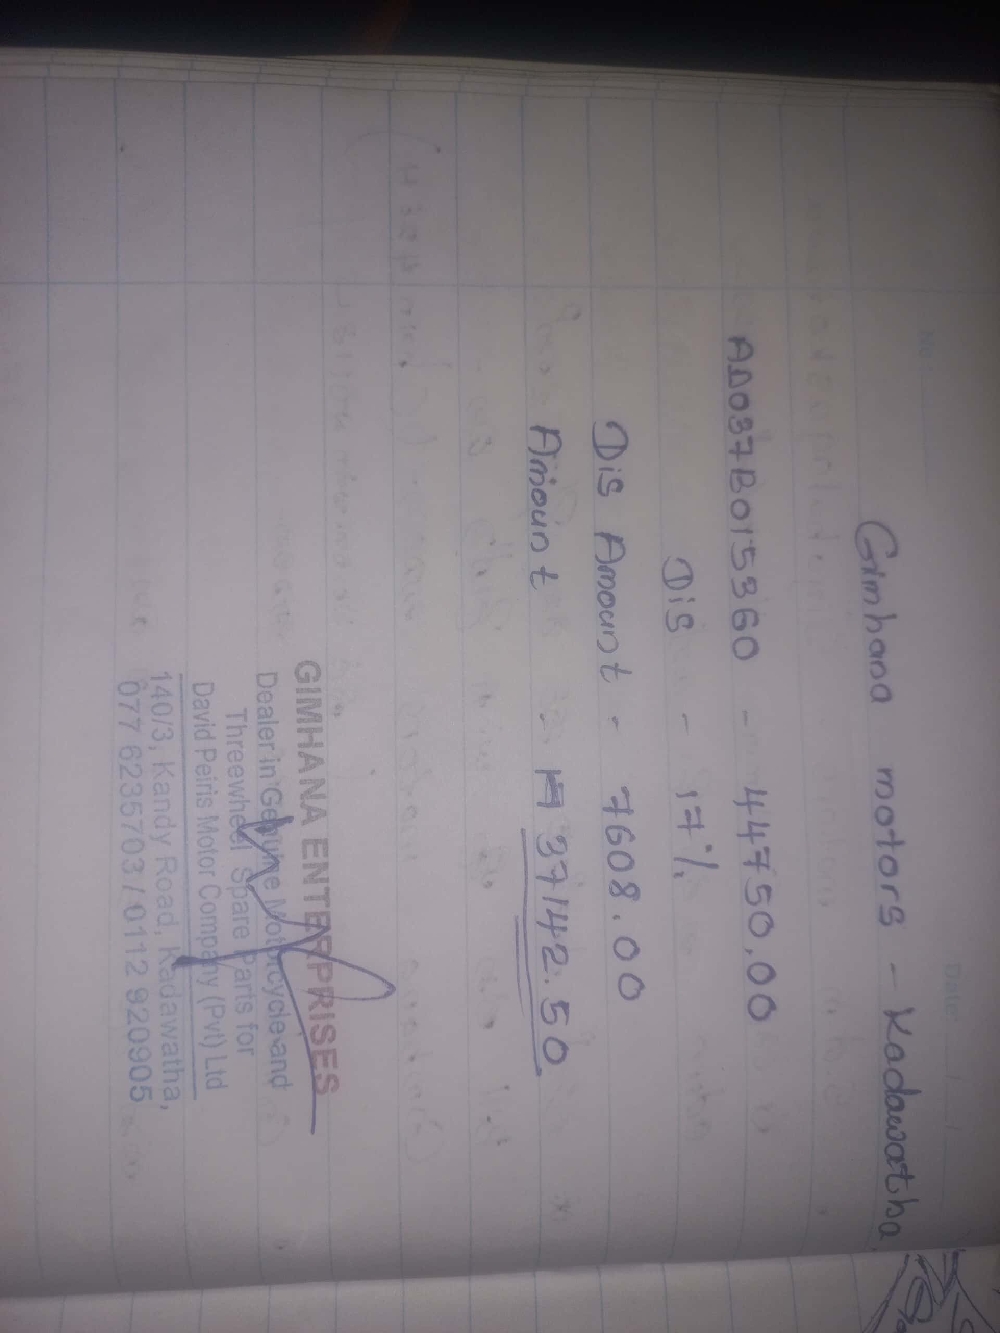 Gimhana motors - Kadawatha
AD037B015360 - 44750.00
Dis - 17%
Dis Amount - 7608.00
Amount 37142.50
GIMHANA ENTERPRISES
Dealer in Genuine Motorcycle and
Threewheel Spare Parts for
David Peiris Motor Company (Pvt) Ltd
140/3, Kandy Road, Kadawatha,
077 6235703 / 0112 920905